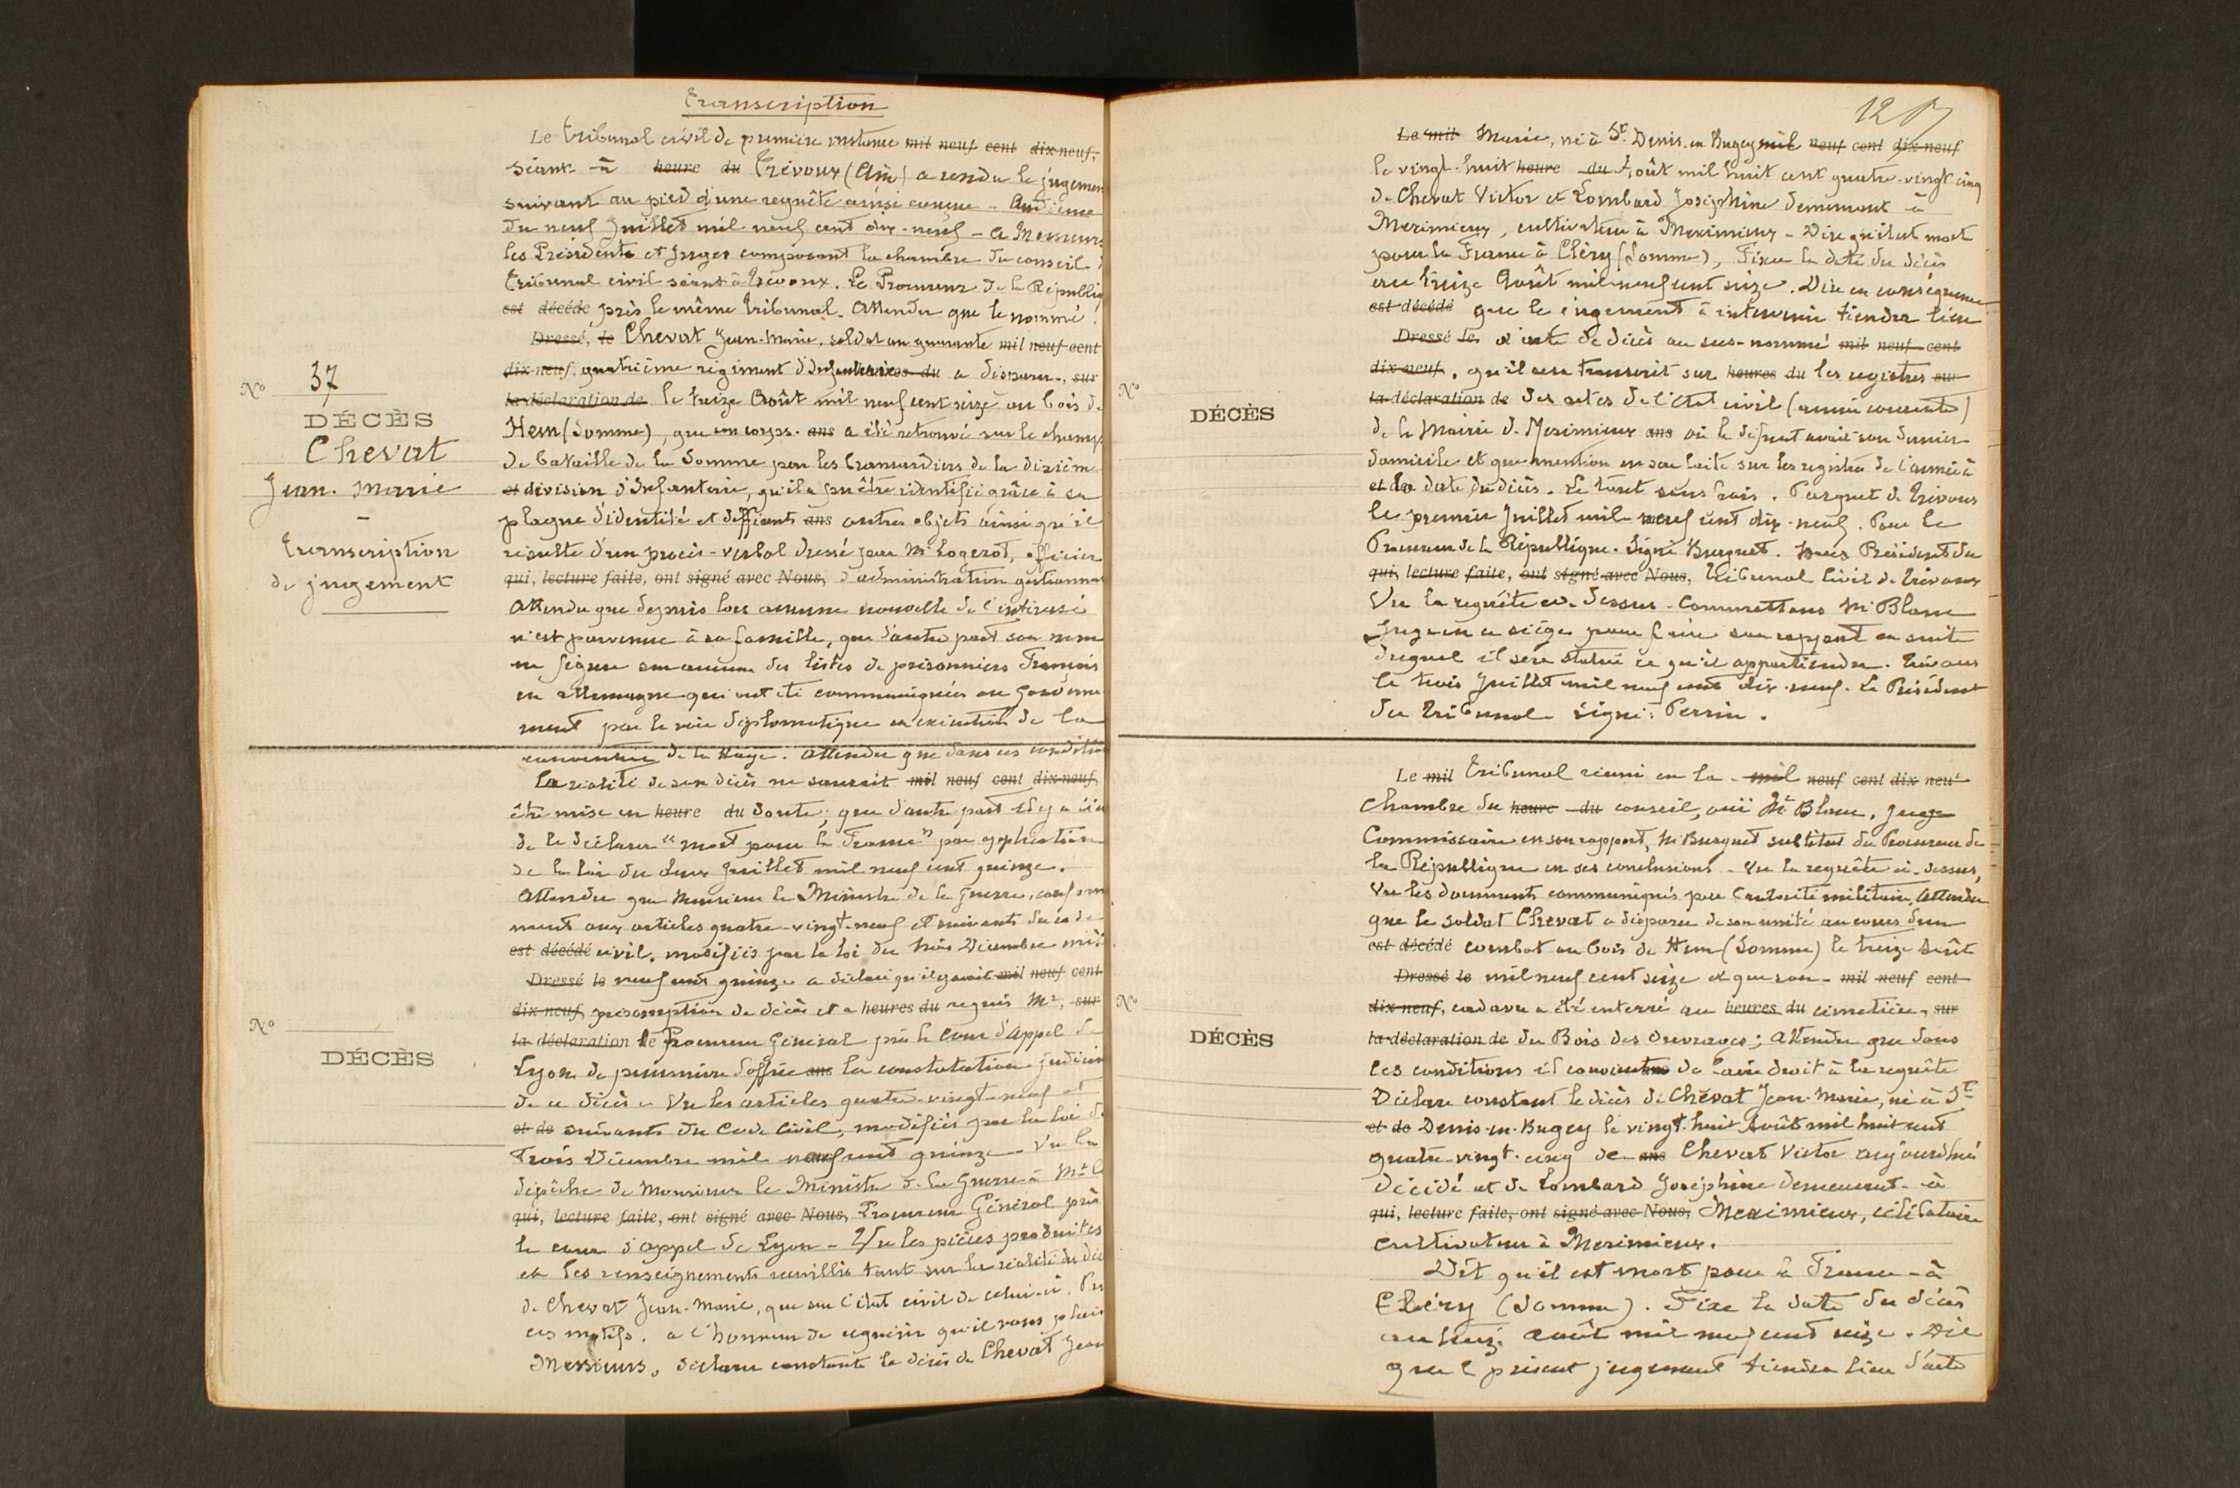 Transcription
Le tribunal civil de première instance mil neuf cent dix-neuf,
séant à heure du Trévoux (Ain) a rendu le jugemen
suivant au pied d'une requête ainsi conçue - Audience
du neuf Juillet mil neuf cent dix-neuf - A Messieurs
les Présidents et Juges composant la chambre du conseil d
Tribunal civil séant à Trévoux. Le Procureur de la Républiq
est décédé près le même tribunal. Attendu que le nommé
Dressé, le Chevat Jean-Marie, soldat au quarante mil neuf cent
dix-neuf, quatrième régiment d'Infanterie heures du a disparu, sur
la déclaration de le treize Août mil neuf cent seize au bois de
Hem (Somme), que son corps ans a été retrouvé sur le champ
de bataille de la Somme par les brancardiers de la dixième
et division d'Infanterie, qu'il a pu être identifié grâce à sa
plaque d'identité et différents ans autres objets ainsi qu'il
résulte d'un procès-verbal dressé par Mr Logerot, officier
qui, lecture faite, ont signé avec Nous, d'administration gestionnai
Attendu que depuis lors aucune nouvelle de l'intéressé
n'est parvenue à sa famille, que d'autre part son nom
ne figure sur aucune des listes de prisonniers Français
en Allemagne qui ont été communiquées au Gouverne
ment par la voie diplomatique en exécution de la
N° 37
DÉCÈS
Chevat
Jean-Marie
-
Transcription
de jugement
convention de la Haye. Attendu que dans ces conditio
la réalité de son décès ne saurait mil neuf cent dix-neuf,
être mise en heure du doute; que d'autre part il y a lieu
de le déclarer "mort pour la France" par application
de la loi du deux Juillet mil neuf cent quinze.
Attendu que Monsieur le Ministre de la Guerre, conformé
ment aux articles quatre-vingt-neuf et suivants du code
est décédé civil, modifiés par la loi du trois Décembre mil
Dressé le neuf cent quinze a déclaré qu'il y avait mil neuf cent
dix-neuf, présomption de décès et a heures du requis Mr, sur
la déclaration de le Procureur Général près la Cour d'Appel de
Lyon de poursuivre d'office ans la constatation judiciai
de ce décès - Vu les articles quatre-vingt-neuf et
et de suivants du Code Civil, modifiés par la loi du
trois Décembre mil neuf cent quinze - Vu la
dépêche de Monsieur le Ministre de la Guerre à Mr le
qui, lecture faite, ont signé avec Nous, Procureur Général près
la cour d'appel de Lyon - Vu les pièces produites
et les renseignements recueillis tant sur la réalité du déc
de Chevat Jean-Marie, que sur l'état civil de celui-ci. Par
ces motifs, a l'honneur de requérir qu'il vous plaise
Messieurs, déclarer constant le décès de Chevat Jean
N°
DÉCÈS
Le mil Marie, né à St Denis-en-Bugey mil neuf cent dix-neuf
le vingt-huit heure du Août mil huit cent quatre-vingt cinq
de Chevat Victor et Lombard Joséphine demeurant à
Meximieux, cultivateur à Meximieux - Dire qu'il est mort
pour la France à Cléry (Somme), Fixer la date du décès
au treize Août mil neuf cent seize. Dire en conséquence
est décédé que le jugement à intervenir tiendra lieu
Dressé le d'acte de décès au sus-nommé mil neuf cent
dix-neuf, qu'il sera transcrit sur heures du les registres sur
la déclaration de des actes de l'état civil (année courante)
de la Mairie de Meximieux ans où le défunt avait son dernier
domicile et que mention en sera faite sur les registres de l'année à
et de la date du décès. Le tout sans frais. Parquet de Trévoux
le premier Juillet mil neuf cent dix-neuf. Pour le
Procureur de la République. Signé Burguet. Nous Président du
qui, lecture faite, ont signé avec Nous, Tribunal Civil de Trévoux
Vu la requête ci-dessus - Commettons Mr Blanc
Juge en ce siège pour faire son rapport en suite
duquel il sera statué ce qu'il appartiendra. Trévoux
le trois Juillet mil neuf cent dix-neuf. Le Président
du tribunal signé: Perrin.
N°
DÉCÈS
Le mil tribunal réuni en la mil neuf cent dix neuf
chambre du heure du conseil, ouï Mr Blanc, Juge
Commissaire en son rapport, Mr Burguet substitut du Procureur de
la République en ses conclusions - Vu la requête ci-dessus,
Vu les documents communiqués par l'autorité militaire, Attendu
que le soldat Chevat a disparu de son unité au cours d'un
est décédé combat au bois de Hem (Somme) le treize Août
Dressé le mil neuf cent seize et que son mil neuf cent
dix-neuf, cadavre a été enterré au heures du cimetière, sur
la déclaration de du Bois des Ouvrages; Attendu que dans
ces conditions il convient ans de faire droit à la requête
Déclare constant le décès de Chevat Jean-Marie, né à St
et de Denis-en-Bugey le vingt-huit Août mil huit cent
quatre-vingt-cinq de ans Chevat Victor aujourd'hui
décédé et de Lombard Joséphine demeurant à
qui, lecture faite, ont signé avec Nous, Meximieux, célibataire
cultivateur à Meximieux.
Dit qu'il est mort pour la France à
Cléry (Somme). Fixe la date du décès
au treize août mil neuf cent seize. Dit
que le présent jugement tiendra lieu d'acte
N°
DÉCÈS